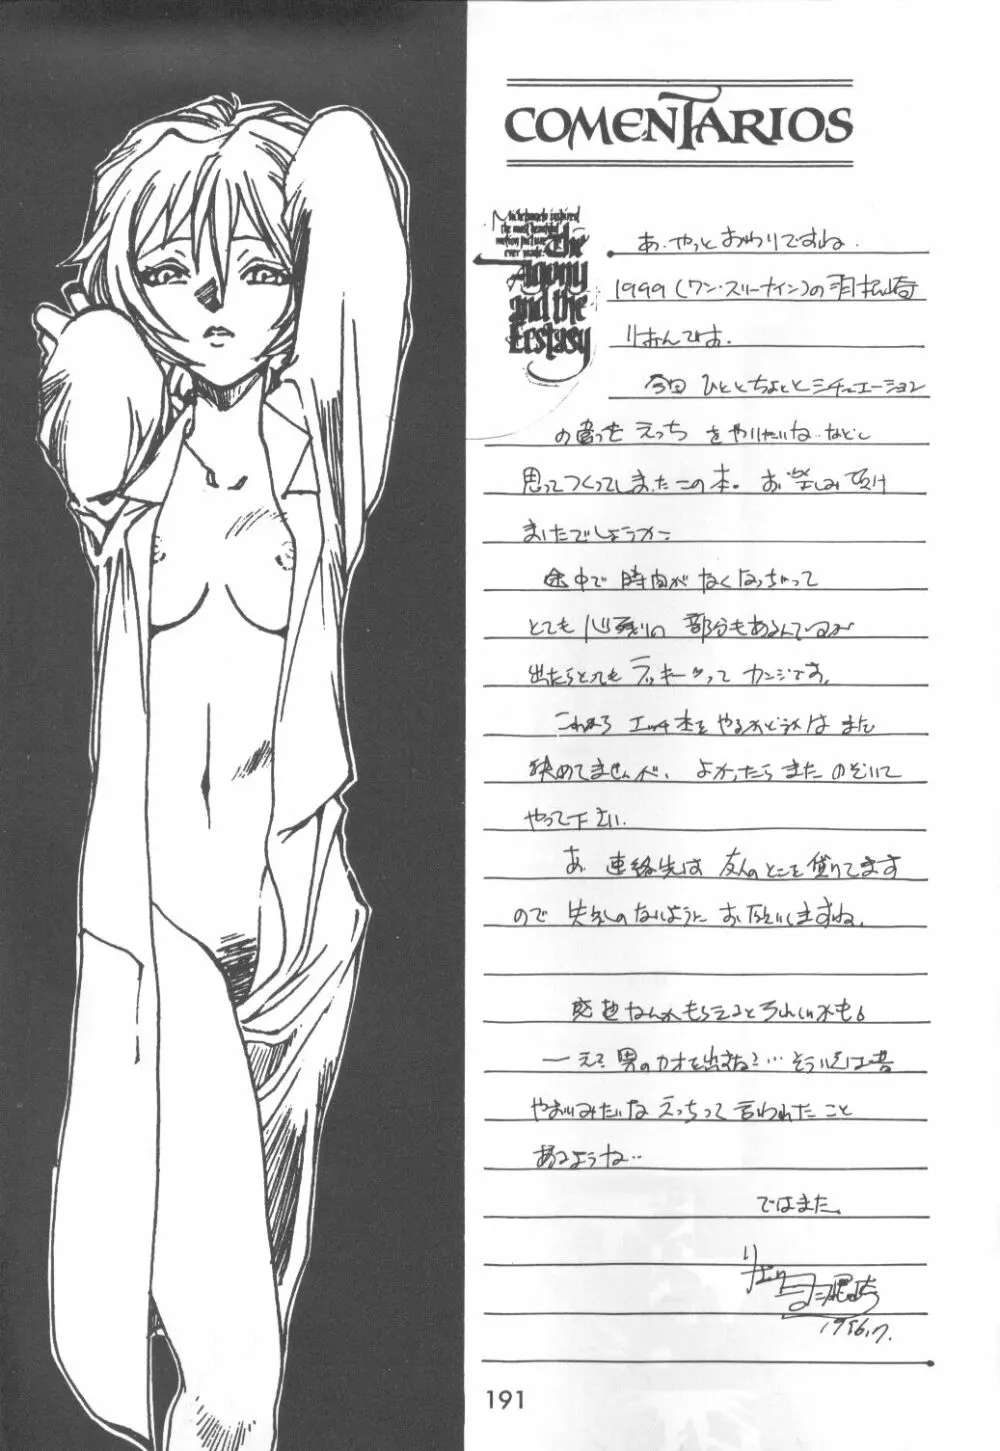 COMENTARIOS
Michelangelo inspired
the most beautiful
motion picture
ever made:
The
Agony
and the
Ecstasy
あ、やっとおわりですね。
1999(ワン・スリーナイン)の
りおんです。
今回 ひととちょっとシチュエーション
の えっち をやりたいね…などと
思ってつくってしまったこの本。お楽しみ頂け
ましたでしょうか
途中で 時間が なくなっちゃって
とても 心残りの 部分もあるんでいるが
出たらとてもラッキーってカンジです。
これから エッチ本を やるかどうかは まだ
決めてませんが、よかったら また のぞいて
やって下さい。
あ、連絡先は 友人のとこを借りてます
ので 失礼のないように お願いしますね。
感想なんかもらえるとうれしいかも。
男のカオを出すな?…そういえば昔
やおいみたいな えっちって 言われたこと
あるような…
ではまた。
191